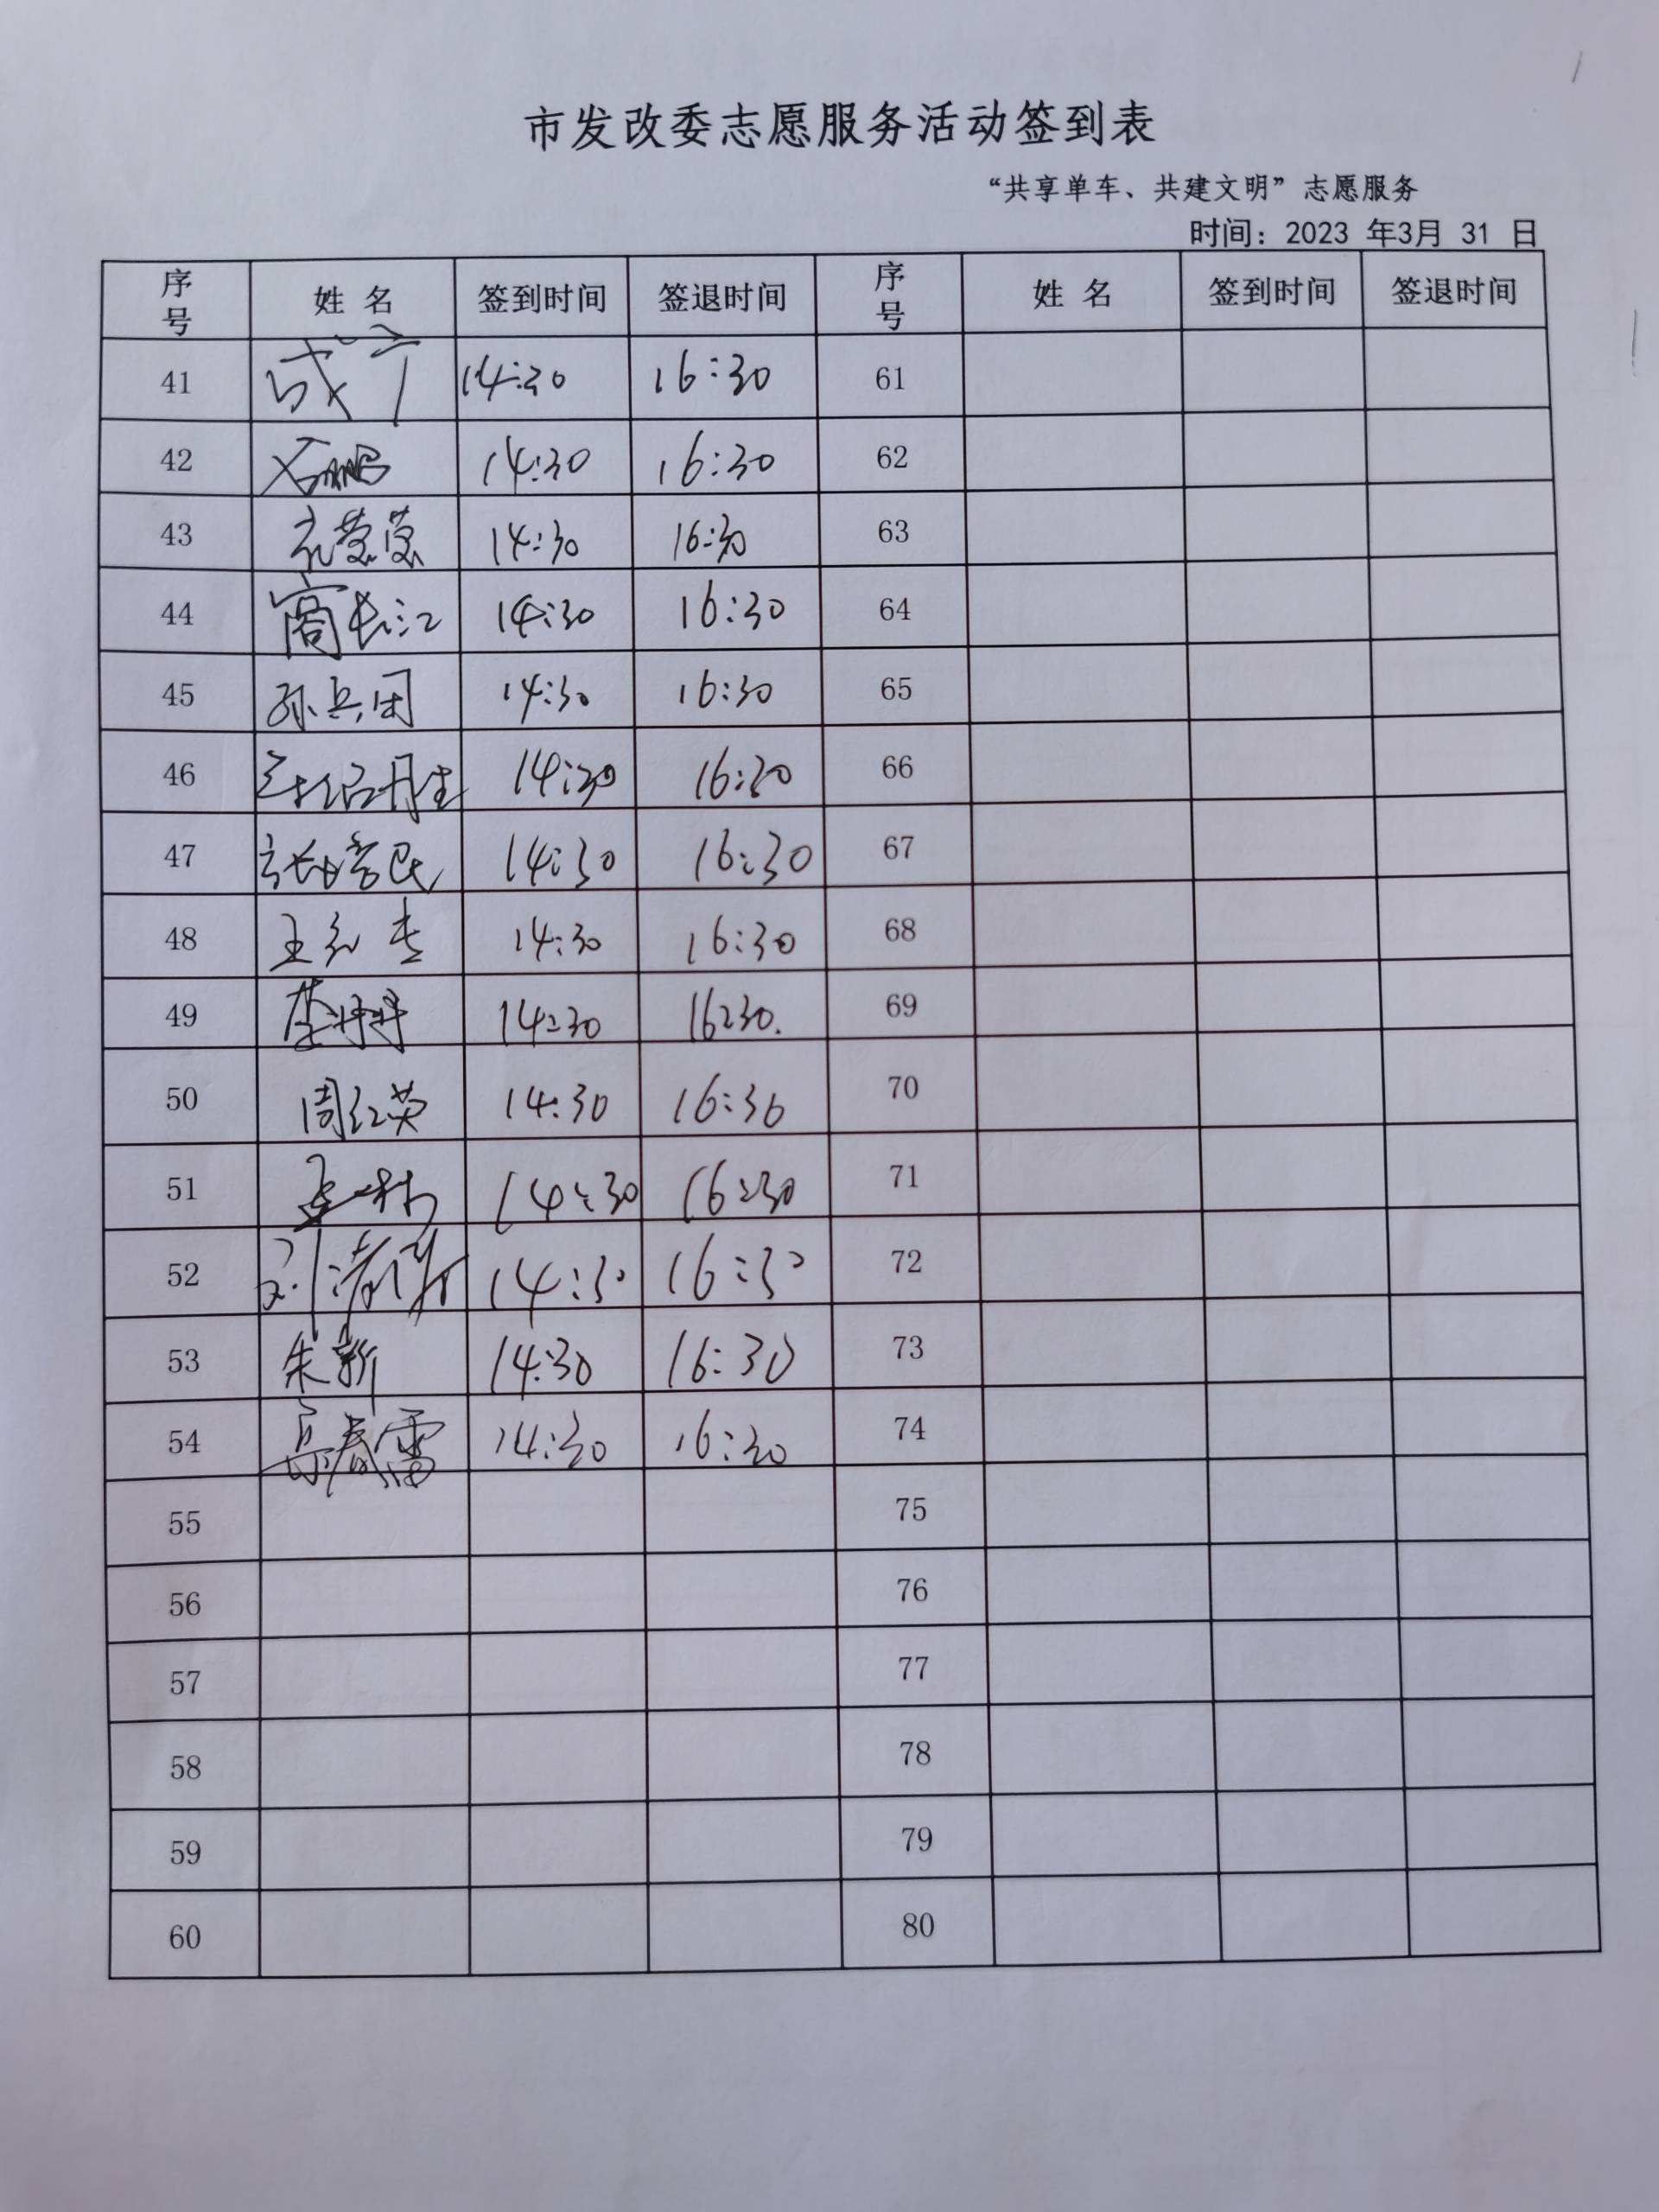 市发改委志愿服务活动签到表
“共享单车、共建文明”志愿服务
时间：2023 年3月 31 日
序号 姓 名 签到时间 签退时间 序号 姓 名 签到时间 签退时间
41 14:30 16:30 61
42 石鹏 14:30 16:30 62
43 亓慧慧 14:30 16:30 63
44 商长江 14:30 16:30 64
45 孙兵团 14:30 16:30 65
46 14:30 16:30 66
47 14:30 16:30 67
48 王 14:30 16:30 68
49 李丹丹 14:30 16:30. 69
50 周红英 14:30 16:30 70
51 14:30 16:30 71
52 刘清 14:30 16:30 72
53 朱新 14:30 16:30 73
54 岳春雷 14:30 16:30 74
55 75
56 76
57 77
58 78
59 79
60 80